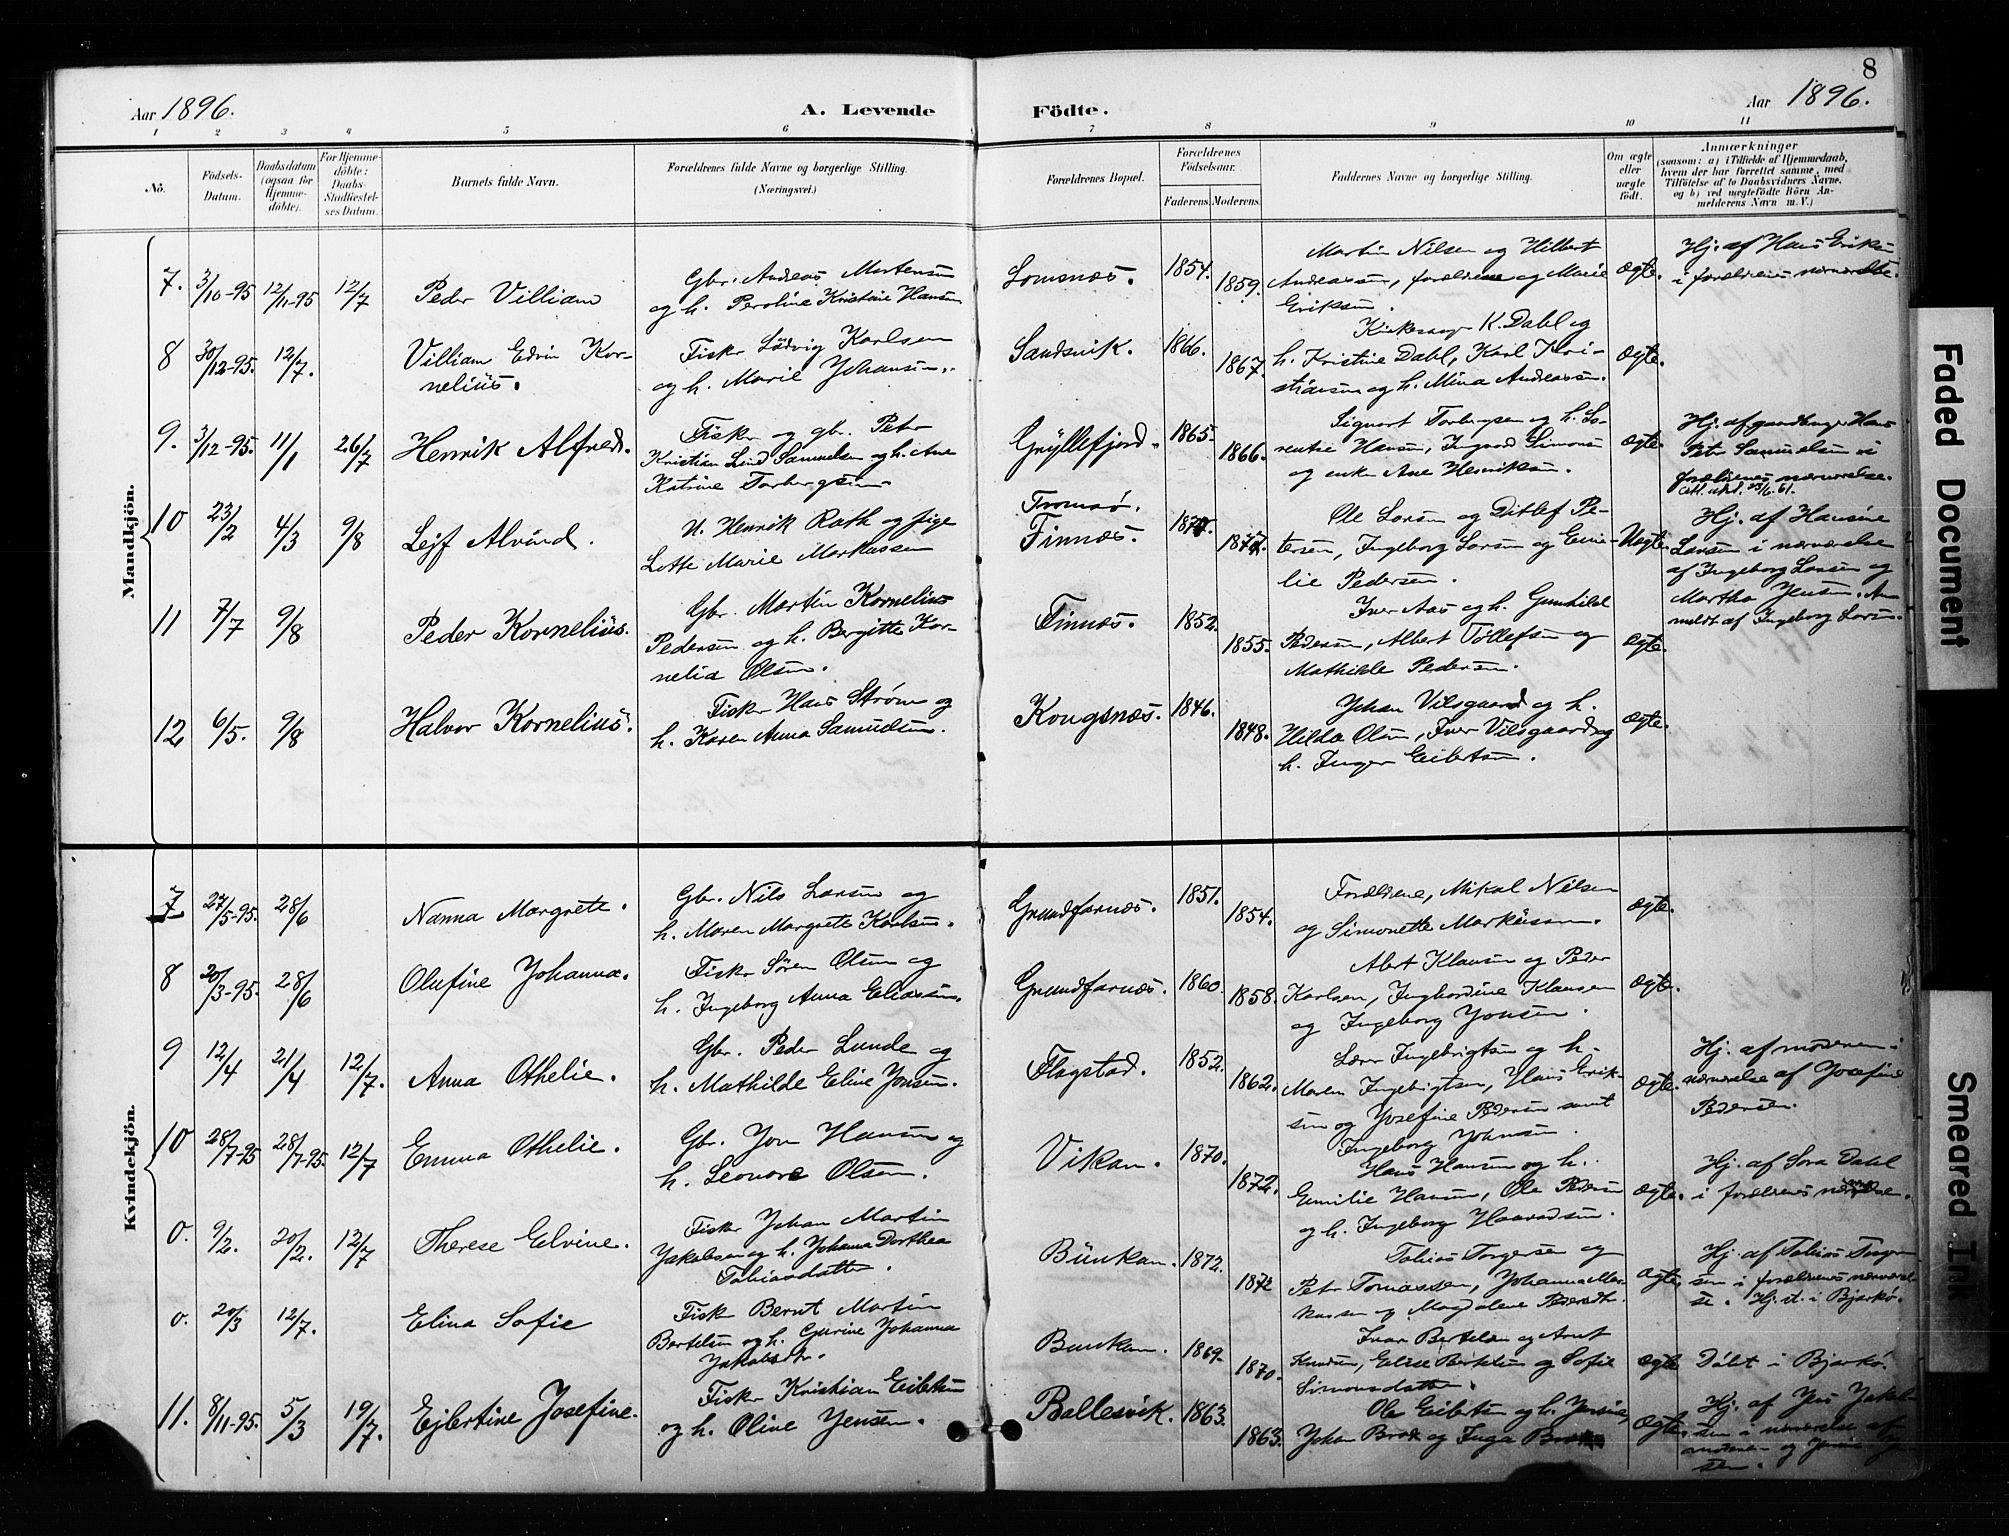 8
Aar 1896. A. Levende Födte. Aar 1896.
1 2 3 4 5 6 7 8 9 10 11
No. Födsels-Datum. Daabsdatum (ogsaa for Hjemme-döbte). For Hjemme-döbte: Daabs-Stadfæstel-ses Datum. Barnets fulde Navn. Forældrenes fulde Navne og borgerlige Stilling. (Næringsvei.) Forældrenes Bopæl. Forældrenes Födselsaar. Faderens. Moderens. Faddernes Navne og borgerlige Stilling. Om ægte eller uægte födt. Anmærkninger (saasom: a) i Tilfælde af Hjemmedaab, hvem der har forrettet samme, med Tilföielse af to Daabsvidners Navne, og b) ved uægtefödte Börn An-melderens Navn m. V.)
Mandkjön.
7. 3/10-95 12/11-95 12/7 Peder Villiam
Gbr. Andreas Mortensen
og h. Peroline Kristine Hansen
Lomsnæs. 1854. 1859.
Martin Nilsen og Hilbert
Andreassen, forældrene og Marie
Eriksen.
Ægte.
Hj. af Hans Eriksen
i forældrenes nærværelse.
8 30/12-95. 12/7. Villiam Edvin Kor-
nelius.
Fisker Ludvig Karlsen
og h. Marie Johansen.
Sandsvik. 1866. 1867.
Kirkesanger K. Dahl og
h. Kristine Dahl, Karl Kri-
stiansen og h. Mina Andreassen.
Ægte.
9. 3/12-95. 11/1 26/7 Henrik Alfred.
Fisker og gbr. Peter
Kristian Lind Samuelsen og h. Ane
Katrine Torbergsen
Gryllefjord. 1865. 1866.
Sigvart Torbergsen og h. Lo-
rentse Hansen, Ingvard Simonsen
og enke Ane Henriksen.
Ægte.
Hj. af gaardbruger Hans
Peter Samuelsen i
forældrenes nærværelse.
Att. utst. 23/6-61.
10 23/2 4/3 9/8 Lejf Alvind.
U. Henrik Rath og pige
Lotte Marie Markussen
Tromsø.
Finnæs.
Ole Larsen og Ditlef Pe-
tersen, Ingeborg Larsen og Emi-
lie Pedersen.
Uægte.
Hj. af Hansine
Larsen i nærværelse
af Ingeborg Larsen og
Martha Jensen. An-
meldt af Ingeborg Larsen.
11 7/7 9/8 Peder Kornelius.
Gbr. Martin Kornelius
Pedersen og h. Bergitte Kor-
nelia Olsen.
Finnæs. 1852. 1855.
Iver Aas og h. Gunhild
Pedersen, Albert Tollefsen og
Mathilde Pedersen.
Ægte.
12 6/5. 9/8 Halvor Kornelius.
Fisker Hans Strøm og
h. Karen Anna Samuelsen.
Kongsnæs. 1846. 1848.
Johan Vilsgaard og h.
Hilda Olsen, Iver Vilsgaard og
h. Inger Eibertsen.
Ægte.
Kvindekjön.
7 27/5-95. 28/6 Nanna Margrete.
Gbr. Nils Larsen og
h. Maren Margrete Karlsen.
Grundfarnæs. 1851. 1854.
Forældrene, Mikal Nilsen
og Simonette Markussen.
Ægte.
8 20/3-95. 28/6 Olufine Johanna.
Fisker Sören Olsen og
h. Ingeborg Anna Eliassen.
Grundfarnæs. 1860. 1858.
Abert Klausen og Peder
Karlsen, Ingbordine Klausen
og Ingeborg Jonsen.
Ægte.
9 12/4 21/4 12/7. Anna Othelie.
Gbr. Peder Lunde og
h. Mathilde Eline Jonsen.
Flagstad. 1852. 1862.
Lærer Ingebrigtsen og h.
Maren Ingebrigtsen, Hans Erik-
sen og Josefine Pedersen samt
Ingeborg Johnsen.
Ægte.
Hj. af moderen i
nærværelse af Josefine
Pedersen.
10 28/7-95 28/7-95. 12/7 Emma Othelie.
Gbr. Jon Hansen og
h. Leonore Olsen.
Vikan. 1870. 1872.
Hans Hansen og h.
Emilie Hansen, Ole Pedersen
og h. Ingeborg Haavadsen.
Ægte.
Hj. af Sara Dahl
i forældrenes nærværelse.
0. 9/2. 20/2. 12/7 Therese Elvine.
Fisker Johan Martin
Jakobsen og h. Johanna Dorthea
Tobiasdatter.
Bunkan. 1872. 1872
Tobias Torgersen og
Peter Tomassen, Johanna Mar-
kussen og Magdalene Pedersdtr.
Ægte.
Hj. af Tobias Torger-
sen i forældrenes nærværel-
se. Hj. st. i Bjarkö.
0. 20/3 12/7. Elina Sofie
Fisker Bernt Martin
Bertelsen og h. Gurine Johanna
Jakobsdtr.
Bunkan. 1869. 1870.
Ivar Bertelsen og Arnt
Knudsen, Elise Bertelsen og Sofie
Simonsdatter.
Ægte
Döbt i Bjarkö.
11. 8/11-95. 5/3 19/7. Ejlertine Josefine.
Fisker Kristian Eilertsen
og h. Oline Jensen.
Ballesvik. 1863. 1863.
Ole Eilertsen og h.
Johan Brox og Inga
Ægte.
Hj. af Jens Jakob-
sen i nærværelse af
Faded Document
Smeared Ink